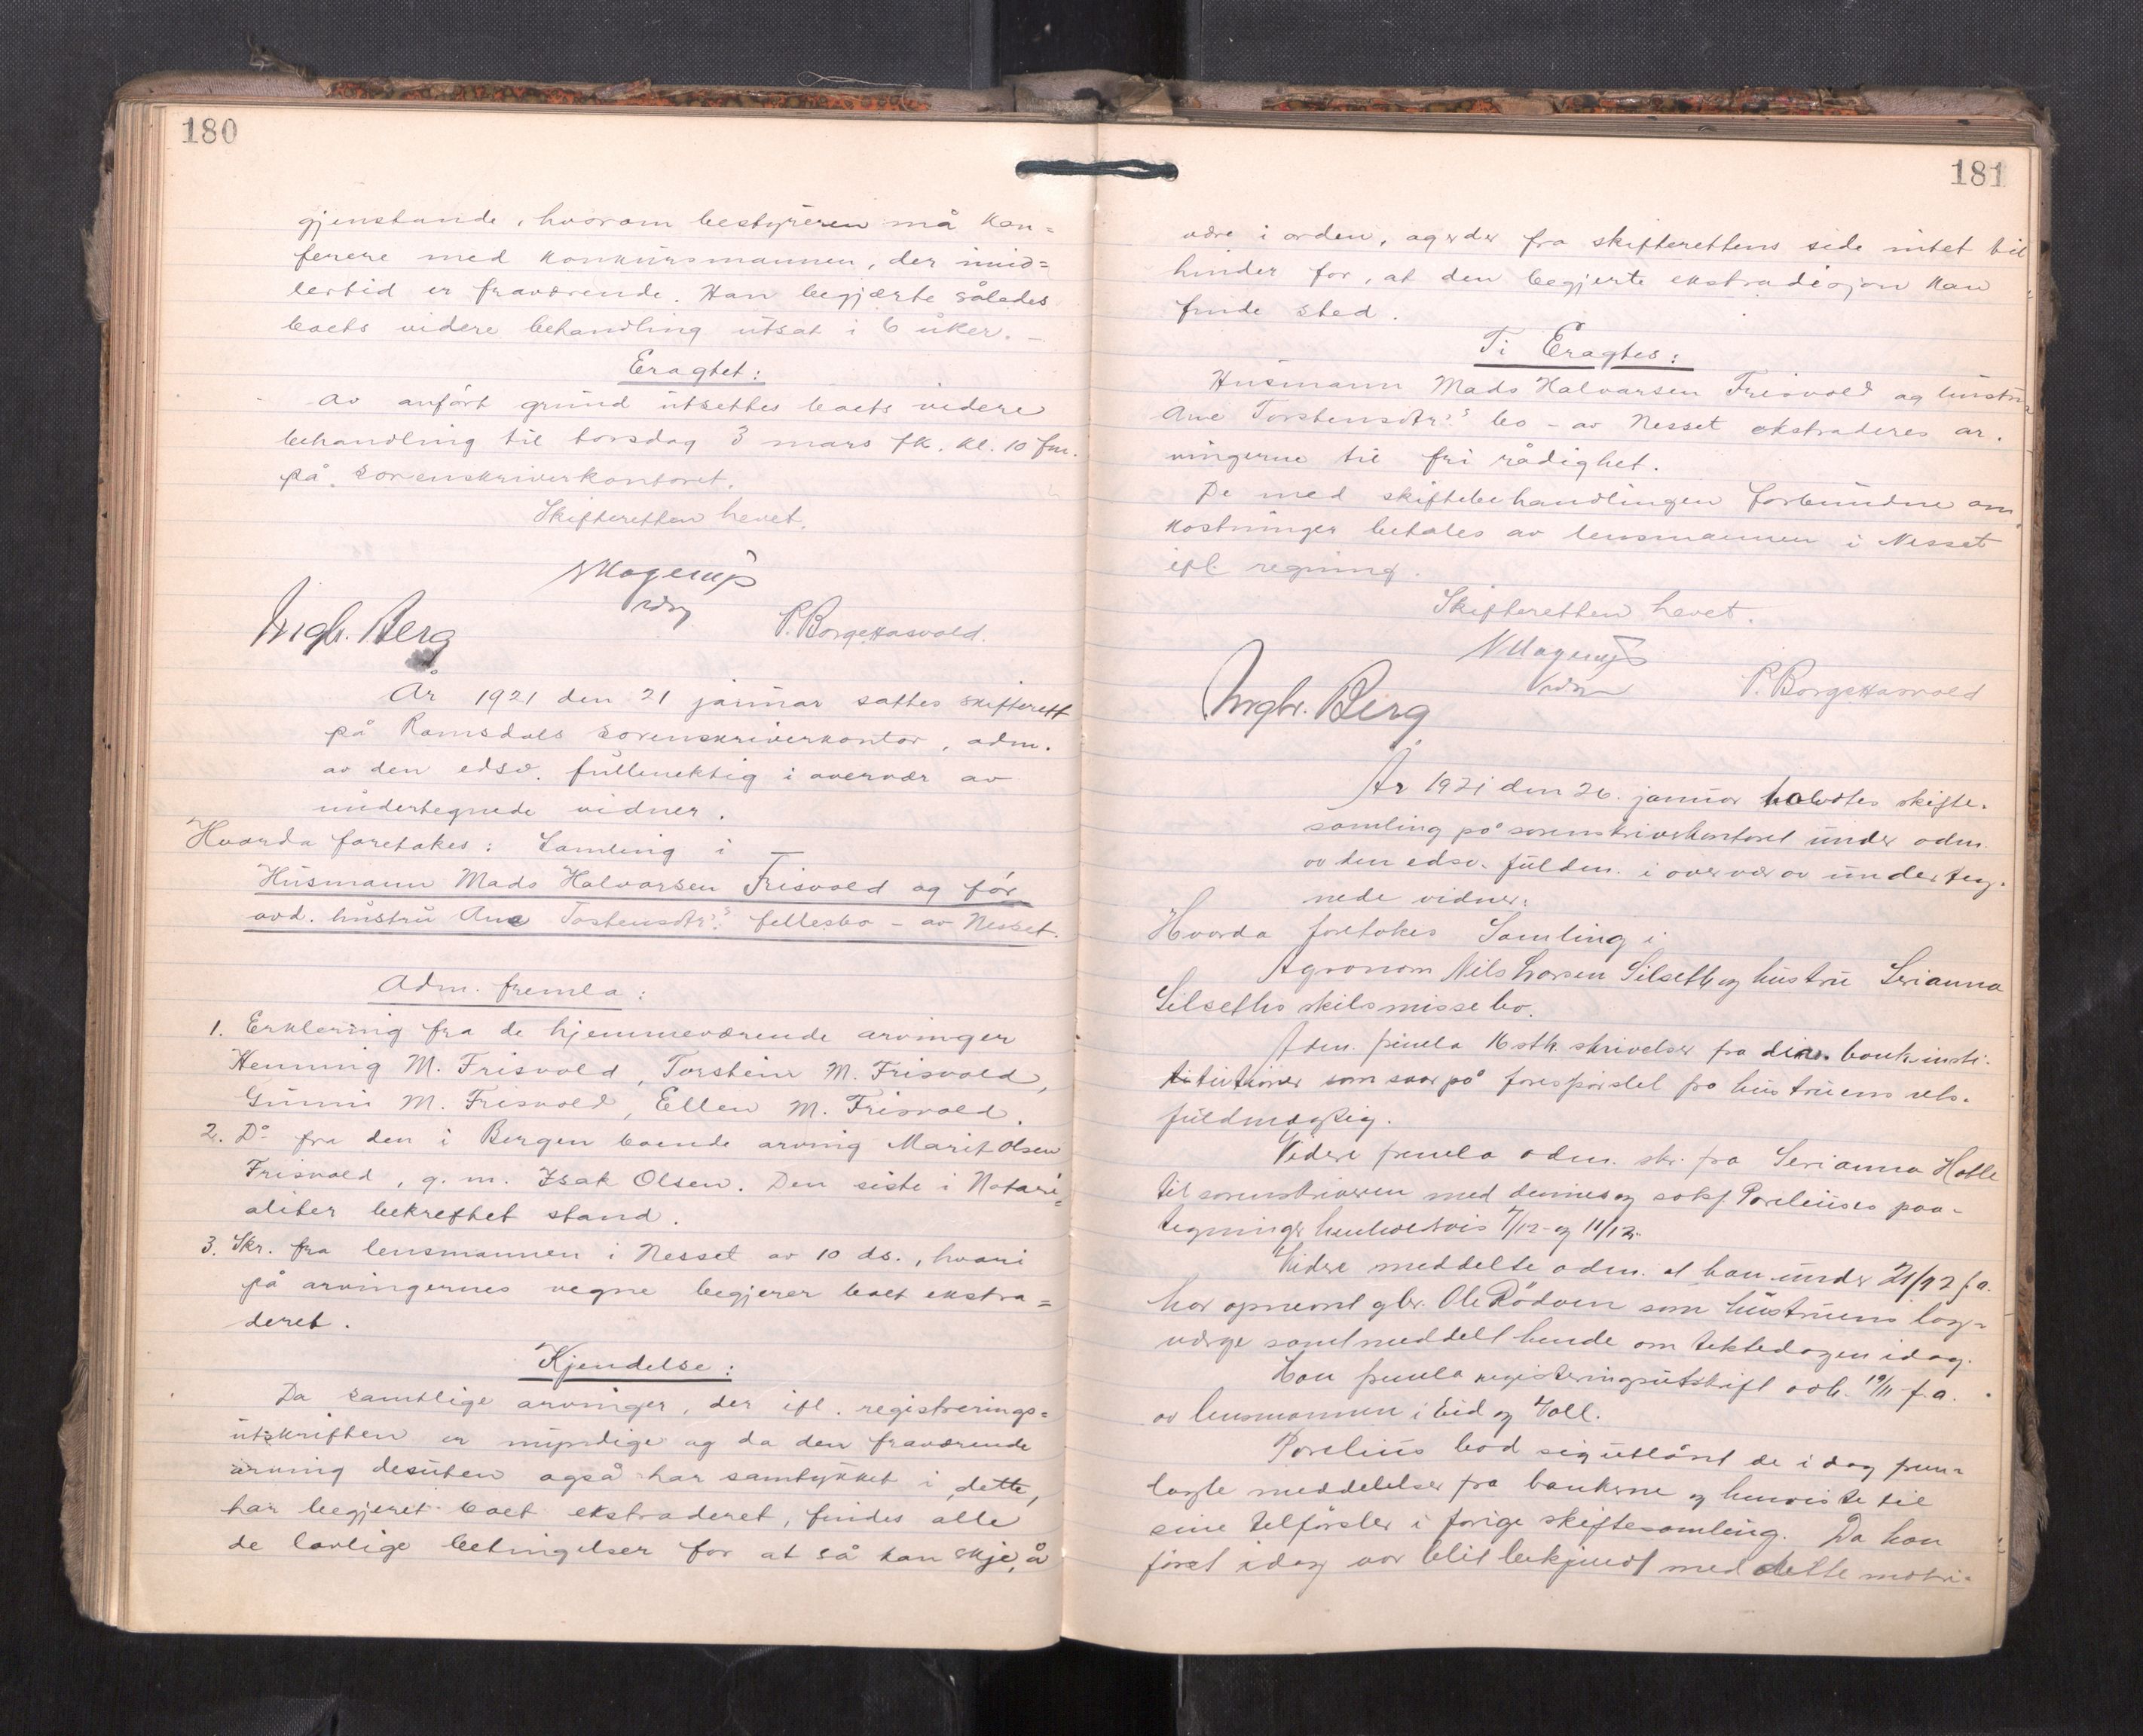 180
gjenstande, hvorom bestyreren må kon=
ferere med konkursmannen, der imid=
lertid er fraværende. Han begjærte således
boets videre behandling utsat i 6 uker. –
Eragtet:
Av anført grund utsettes boets videre
behandling til torsdag 3 mars fk. kl. 10 fm.
på sorenskriverkontoret.
Skifteretten hevet.
Ingbr. Berg
P. Borgehasvold.
År 1921 den 21 januar sattes skifterett
på Romsdals sorenskriverkontor, adm.
av den edsv. fullmektig i overvær av
undertegnede vidner.
Hvorda foretokes: Samling i
Husmann Mads Halvorsen Frisvold og før
avd. hustru Ane Tostensdtr's fellesbo – av Nesset.
Adm. fremla:
1. Erklering fra de hjemmeværende arvinger
Henning M. Frisvold, Torstein M. Frisvold,
Gunni M. Frisvold, Ellen M. Frisvold.
2. Do fra den i Bergen boende arving Marit Olsen
Frisvold, g. m. Isak Olsen. Den siste i Notari=
aliter bekreftet stand.
3. Skr. fra lensmannen i Nesset av 10 ds., hvori
på arvingernes vegne begjerer boet ekstra=
deret.
Kjendelse:
Da samtlige arvinger, der ifl. registrerings=
utskriften er myndige og da den fraværende
arving desuten også har samtykket i dette,
har begjeret boet ekstraderet, findes alle
de lovlige betingelser for at så kan skje, å
181
være i orden, og er der fra skifterettens side intet til
hinder for, at den begjerte ekstradisjon kan
finde sted.
Ti Eragtes:
Husmann Mads Halvorsen Frisvold og hustru
Ane Torstensdtr's bo – av Nesset ekstraderes ar.
vingerne til fri rådighet.
De med skiftebehandlingen forbundne om
kostninger betales av lensmannen i Nesset
ifl. regning.
Skifteretten hevet.
Ingbr. Berg
P. Borgehasvold
År 1921 den 26. januar holdtes skifte.
samling på sorenskriverkontoret under adm.
av den edsv. fuldm. i overvær av underteg.
nede vidner:
Hvorda foretokes Samling i
Agronom Nils Larsen Silseth og hustru Serianna
Silseths skilsmissebo.
Adm. fremla 16 stk. skrivelser fra div. bankinsti-
titutioner som svar på forespørsel fra hustruens
fuldmægtig.
Videre fremla adm. skr. fra Serianna Hatle
til sorenskriveren med dennes og sakf. Porelius's paa-
tegninger henholdsvis 7/12 og 11/12.
Videre meddelte adm. at han under 21/12 f.a.
har opnevnt gbr. Ole Rødven som hustruens lag-
verge samt meddelt hende om tektedagen idag.
Han fremla registreringsutskrift avh. 19/11 f.a.
av lensmannen i Eid og Voll.
Porelius bad sig utlånt de i dag frem-
lagte meddelelser fra bankerne og henviste til
sine tilførsler i forige skiftesamling. Da han
først idag var blit bekjendt med dette matri-